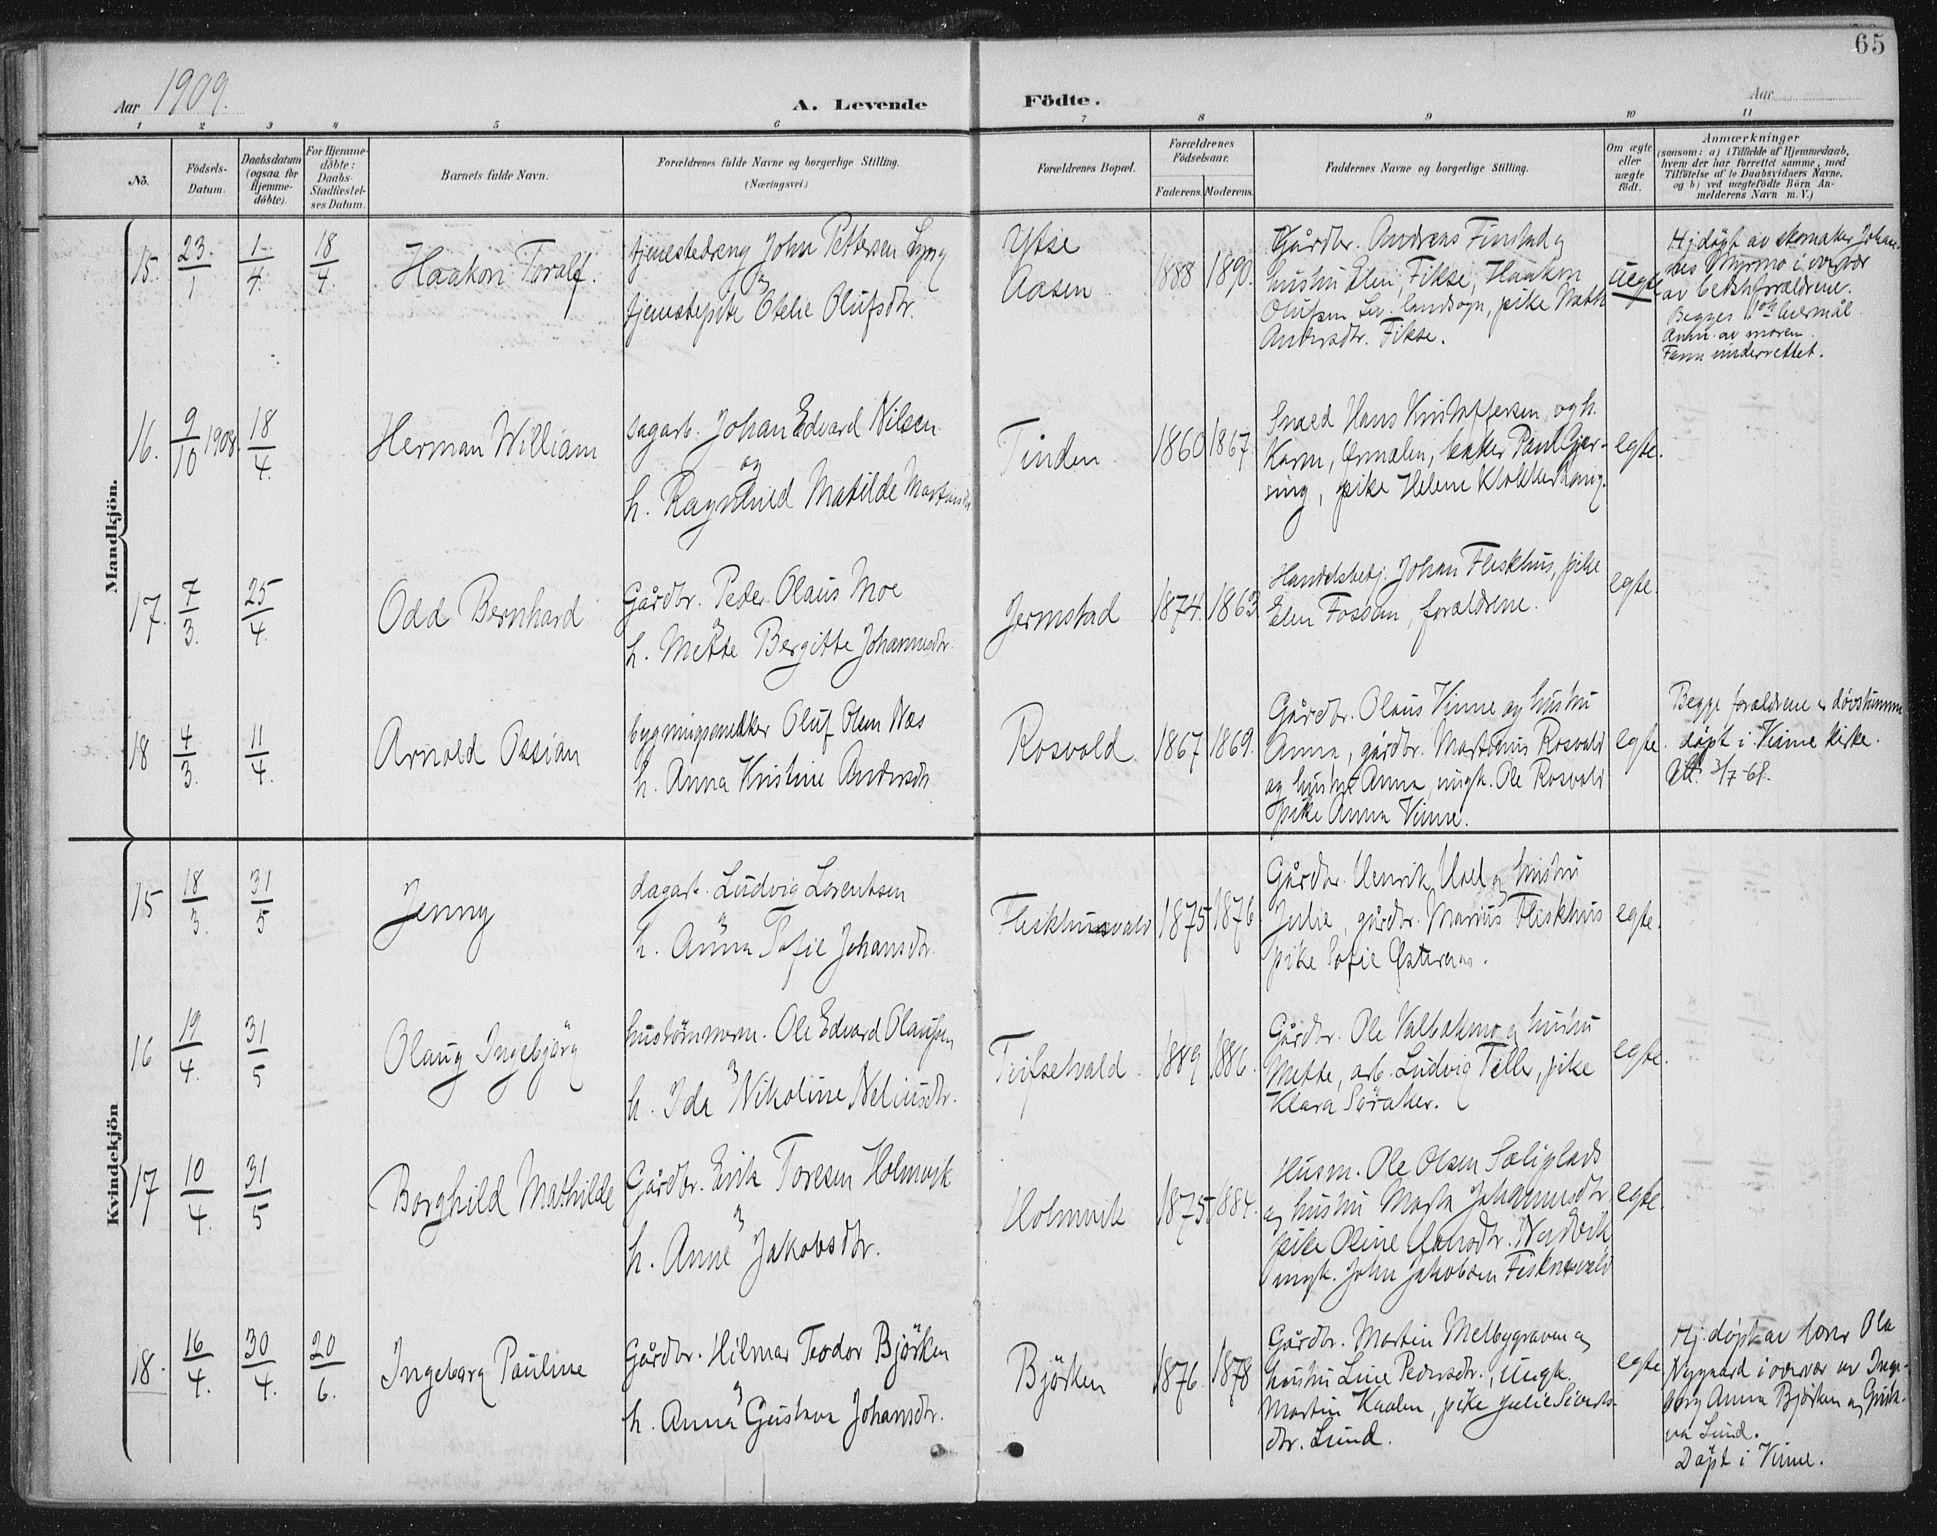 65
Aar 1909.
A. Levende Födte.
Aar
1 2 3 4 5 6 7 8 9 10 11
No.
Födsels-
Datum.
Daabsdatum
(ogsaa for
Hjemme-
döbte).
For Hjemme-
döbte:
Daabs-
Stadfæstel-
ses Datum.
Barnets fulde Navn.
Forældrenes fulde Navne og borgerlige Stilling.
(Næringsvei.)
Forældrenes Bopæl.
Forældrenes
Födselsaar.
Faderens. Moderens.
Faddernes Navne og borgerlige Stilling.
Om ægte
eller
uægte
födt.
Anmærkninger
(saasom: a) i Tilfælde af Hjemmedaab,
hvem der har forrettet samme, med
Tilföielse af to Daabsvidners Navne,
og b) ved uægtefödte Börn An-
melderens Navn m. V.)
Mandkjön.
15. 23/1 1/4 18/4
Haakon Toralf.
tjenestedreng John Pettersen Lyng
og
tjenestepike Otelie Olufsdtr.
Ytse
Aasen
1888 1890.
Gårdbr. Andreas Finstad og
hustru Elen, Fikse, Haakon
Olufsen, pike
Andersdtr. Fikse.
uegte
Hjdöpt av skomaker Johan-
nes Myrmo i overvær
av bedsteforældrene.
Begges 1ste leiermål.
Anm. av moren.
Faren underrettet.
16. 9/10 1908 18/4
Herman William
dagarb. Johan Edvard Nilsen
og
h. Ragnhild Matilde
Tinden.
1860 1867.
Smed Hans Kristoffersen og h.
Karen, Ørmelen, baker Paul Gjer-
sing, pike Helene
egte.
17. 7/3. 25/4
Odd Bernhard
Gårdbr. Peder Olaus Moe
og
h. Mette Bergitte Johannesdtr.
Jermstad
1874. 1863.
Handelsbetj. Johan Fleskhus, pike
Elen, forældrene.
egte.
18 4/3. 11/4.
Arnold Ossian
bygningssnekker Oluf Olsen Næs
h. Anna Kristine Andersdtr
Rosvold.
1867 1869.
Gårdbr. Olaus Vinne og hustru
Anna, gårdbr. Martinus Rosvold
og hustru Anna, ungk. Ole Rosvold
pike Anna Vinne.
egte.
Begge forældrene er døvstumme
døpt i Vinne kirke.
Att. 3/7-68.
Kvindekjön
15 18/3. 31/5
Jenny
dagarb. Ludvig Lorentsen
og
h. Anna Sofie Johansdtr.
Fleskhusvald
1875 1876.
Gårdbr. Henrik og hustru
Julie, gårdbr. Marius Fleskhus
pike Sofie
egte.
16 19/4. 31/5
Olaug Ingebjörg
hustömmerm. Ole Edvard Olausen
og
h. Ida Nikoline Neliusdtr.
1889 1886.
Gårdbr. Ole Valbakmo og hustru
Mette, arb. Ludvig Teller, pike
Klara Söraker.
egte.
17 10/4. 31/5
Borghild Mathilde
Gårdbr. Erik Toresen Holmvik
og
h. Anne Jakobsdtr.
Holmvik
1875. 1884.
Husm. Ole Olsen
og hustru Marta Johannesdtr
pike Oline
ungk. John Jakobsen
egte.
18. 16/4. 30/4. 20/6.
Ingeborg Pauline
Gårdbr. Hilmar Teodor Björken
og
h. Anna Gustava Johansdtr.
Björken
1876. 1878
Gårdbr. Martin Melbygraven og
hustru Line Pedersdtr., ungk.
Martin Kaalen, pike Julie Siverts-
dtr. Lund.
egte
Hj.döpt av lærer Ola
Nygaard i overvær av Inge-
borg Anna Björken og
Lund.
Döpt i Vinne.